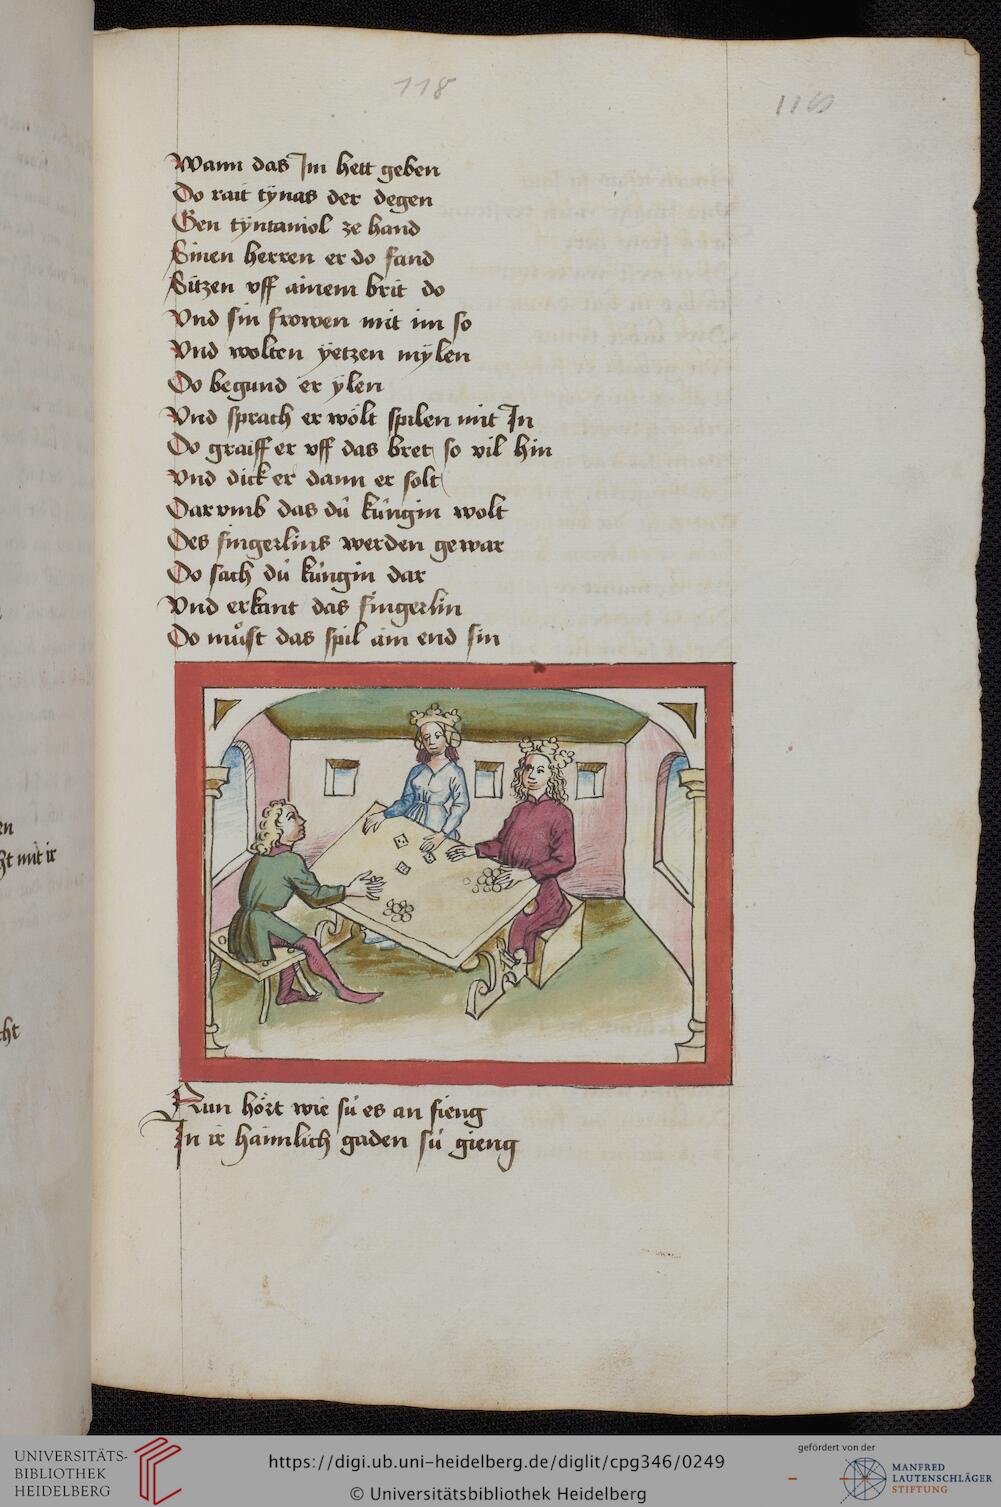 118
119
Wann das Im hett geben
Do rait tÿnas der degen
Gen tÿntaniol ze hand
Sinen herren er do fand
Sitzen vff ainem brit do
Vnd sin frowen mit im so
Vnd wolten ÿetzen mÿlen
Do begund er ÿlen
Vnd sprach er wölt spilen mit In
Do graiff er vff das bret so vil hin
Vnd dick er dann er solt
Dar vmb das dú kúngin wolt
Des fingerlins werden gewar
Do sach dú kúngin dar
Vnd erkant das fingerlin
Do muͦst das spil am end sin
Nun hört wie sú es an fieng
In ir haimlich gaden sú gieng
en
zt mit ir
cht
UNIVERSITÄTS-
BIBLIOTHEK
HEIDELBERG
https://digi.ub.uni-heidelberg.de/diglit/cpg346/0249
© Universitätsbibliothek Heidelberg
gefördert von der
MANFRED
LAUTENSCHLÄGER
STIFTUNG